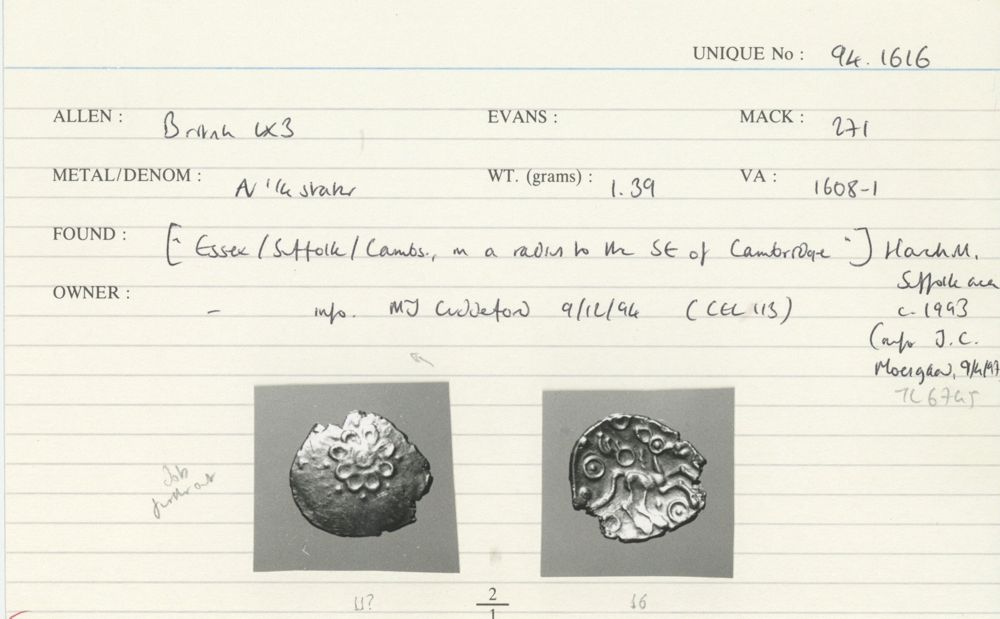 UNIQUE No : 94.1616
ALLEN : British LX3 EVANS : MACK : 271
METAL/DENOM : AV 1/4 stater WT. (grams) : 1.39 VA : 1608-1
FOUND : [" Essex/Suffolk/Cambs., in a radius to the SE of Cambridge "]
Suffolk area
OWNER : - info. MJ Cuddeford 9/12/94 (CCI 113)
c. 1993
(info J.C.
TL6745
Job
11?
2
1
16